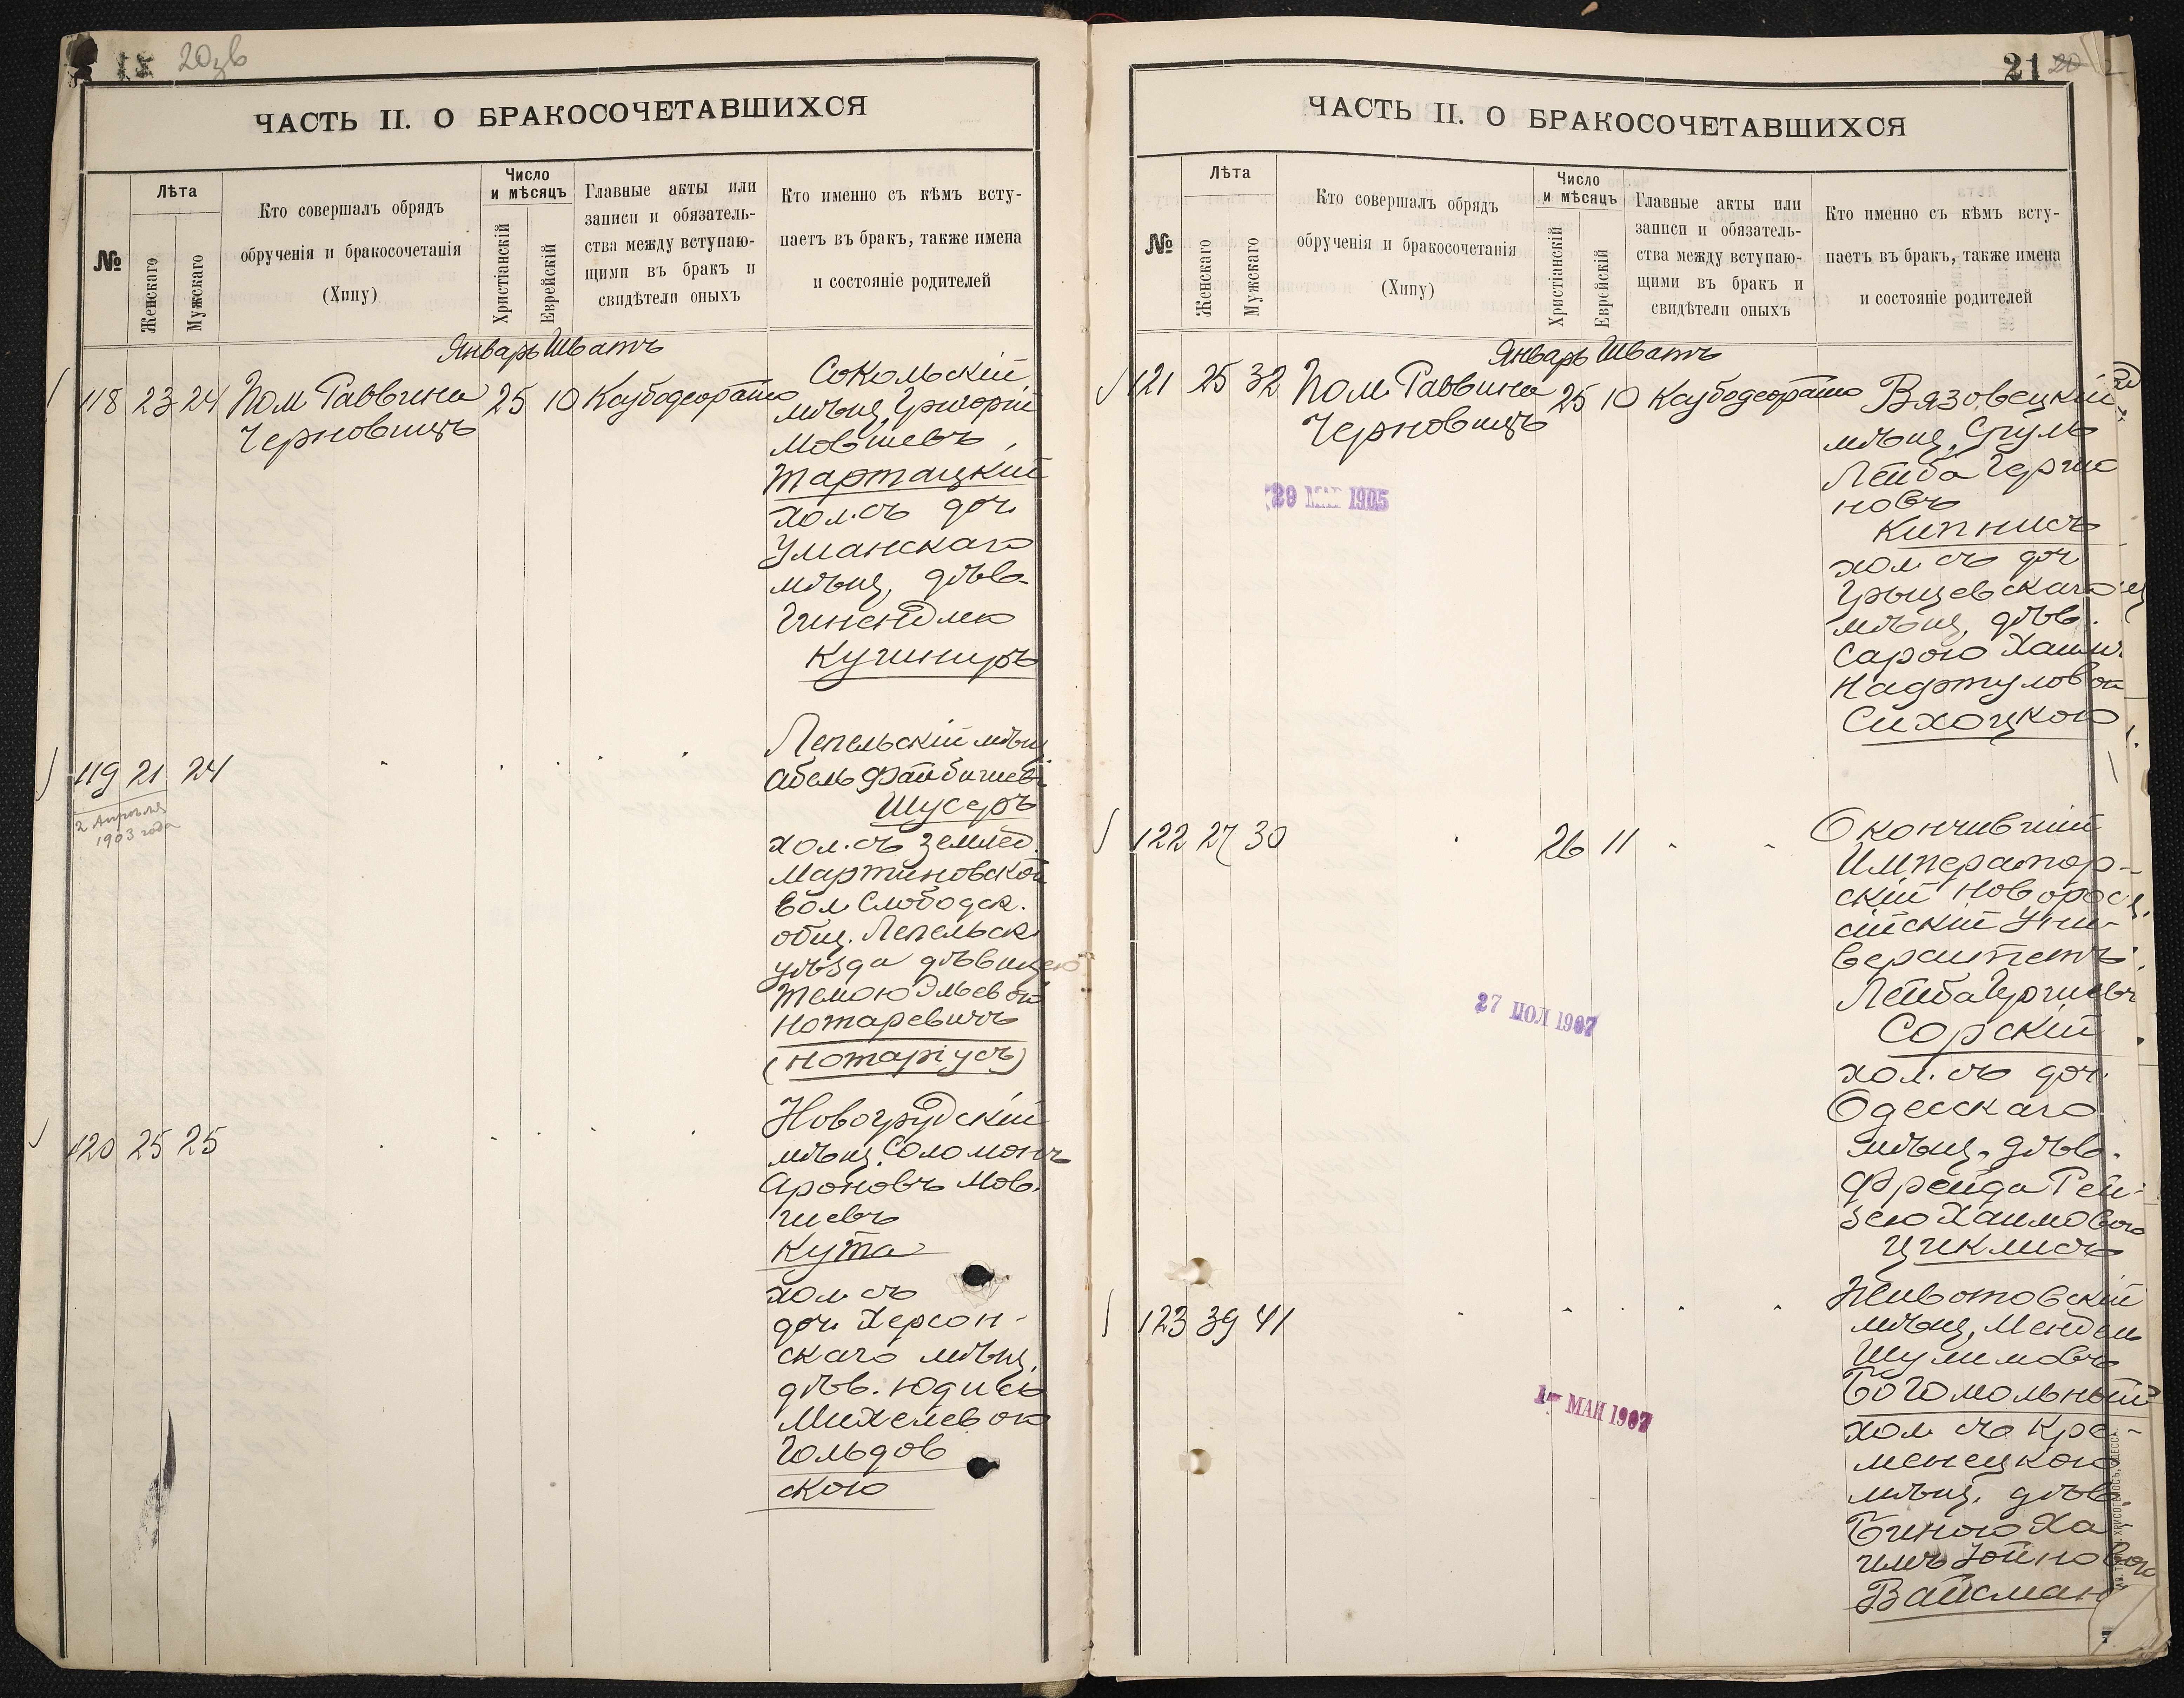 20 зв
ЧАСТЬ II. О БРАКОСОЧЕТАВШИХСЯ
№
Лѣта
Женскаго
Мужскаго
Кто совершалъ обрядъ
обрученія и бракосочетанія
(Хипу)
Число
и мѣсяцъ
Христіанскій
Еврейскій
Главные акты или
записи и обязатель-
ства между вступаю-
щими въ бракъ и
свидѣтели оныхъ
Кто именно съ кѣмъ всту-
паетъ въ бракъ, также имена
и состояніе родителей
Январь Шватъ
118 23 24 Пом. Раввина 25 10
Черновицъ
Сокольскій
мѣщ. Григорій
Мовшевъ
Тартацкій
хол. съ доч.
Уманскаго
мѣщ. дѣв.
Гинендлею
Кушниръ
119 21 24
2 Апрѣля
1903 года
Лепельскій мѣщ.
Абель Файбишевъ
Шусеръ
хол. съ землед.
Мартиновской
вол. Слободск.
общ. Лепельск.
уѣзда дѣвицею
Темою Эльевой
Нотаревичъ
(Нотаріусъ)
120 25 25
Новогрудскій
мѣщ. Соломонъ
Ароновъ Мов-
шевъ
Кута
хол. съ
доч. Херсон-
скаго мѣщ.
дѣв. Юдись
Михелевою
Гольдов
скою
21 20
ЧАСТЬ II. О БРАКОСОЧЕТАВШИХСЯ
№
Лѣта
Женскаго
Мужскаго
Кто совершалъ обрядъ
обрученія и бракосочетанія
(Хипу)
Число
и мѣсяцъ
Христіанскій
Еврейскій
Главные акты или
записи и обязатель-
ства между вступаю-
щими въ бракъ и
свидѣтели оныхъ
Кто именно съ кѣмъ всту-
паетъ въ бракъ, также имена
и состояніе родителей
Январь Шватъ
121 25 32 Пом. Раввина 25 10
Черновицъ
29 МАР 1905
Вязовецкій
мѣщ. Сруль
Лейба Герш
новъ
Кипнисъ
хол. съ доч.
Грыцевскаго
мѣщ. дѣв.
Сарою Хаим.
Нафтуловой
Сихоцкою
122 27 30 26 11
27 ІЮЛ 1907
Окончившій
Император-
скій Новорос-
сійскій Уни-
верситетъ
Лейба Гершевъ
Сорскій
хол. съ доч.
Одесскаго
мѣщ. дѣв.
Фрейда Рей-
зею Хаимовою
Циклисъ
123 39 41
1 МАЙ 1907
Животовскій
мѣщ. Мендель
Шулимовъ
Богомольный
хол. съ Кре-
менецкою
мѣщ. дѣв.
Биною Ха-
имъ Іойновою
Вайсман